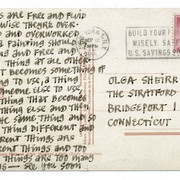 S ARE FREE AND FLUID
WISE THEY'RE OVER-
D AND OVERWORKED
PAINTING SHOUL
NG AND FREE AND
THING AT ALL OTHER-
T BECOMES SOMETHING OF
NG TO USE, A THING
ONE TO USE, THE
THING THAT BECOME
THING ELSE AND THE
ENT THING - AND SO
THING DIFFERENT AND
FFERENT THINGS ARE
ERENT THINGS AND TOO
THINGS ARE TOO MANY
S — SEE YOU SOON
BUILD YOUR F
WISELY, SA
U.S. SAVINGS
OLGA SHEIRR
THE STRATFORD
BRIDGEPORT 1
CONNECTICUT